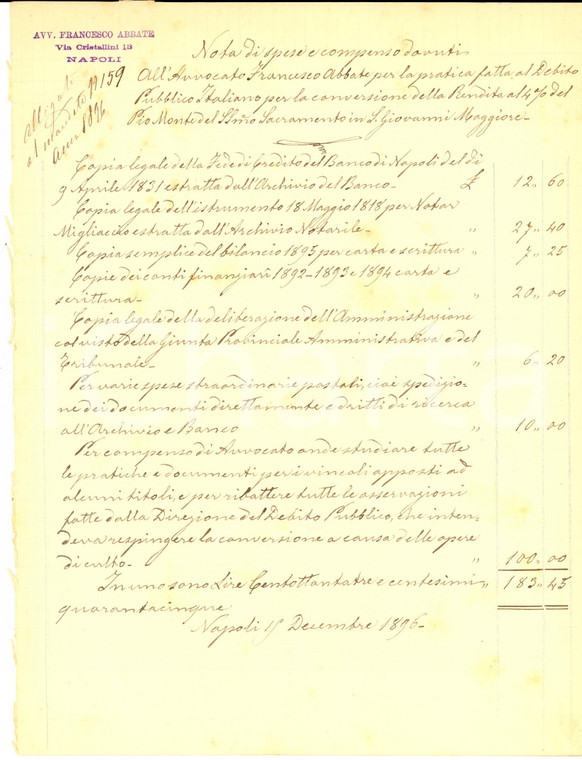 AVV. FRANCESCO ABBATE
Via Cristallini 13
NAPOLI
allegato
al mandato N 159
Anno 1896
Nota di spese e compenso dovuti
All'Avvocato Francesco Abbate per la pratica fatta al Debito
Pubblico Italiano per la conversione della Rendita al 4% del
Pio Monte del SSmo Sacramento in S. Giovanni Maggiore-
Copia legale della Fede di Credito del Banco di Napoli del dì
9 Aprile 1831 estratta dall'Archivio del Banco- £ 12,, 60
Copia legale dell'istrumento 18 Maggio 1818 per Notar
Migliaccio estratta dall'Archivio Notarile- " 27,, 40
Copia semplice del bilancio 1895 per carta e scrittura " 7,, 25
Copie dei conti finanziari 1892-1893 e 1894 carta e
scrittura- " 20,, 00
Copia legale della deliberazione dell'Amministrazione
col visto della Giunta Provinciale Amministrativa e del
Tribunale- " 6,, 20
Per varie spese straordinarie postali, cioè spedizio-
ne dei documenti direttamente e dritti di ricerca
all'Archivio e Banco " 10,, 00
Per compenso di Avvocato onde studiare tutte
le pratiche e documenti per i vincoli apposti ad
alcuni titoli, e per ribattere tutte le osservazioni
fatte dalla Direzione del Debito Pubblico, che inten-
deva respingere la conversione a causa delle opere
di culto- " 100,, 00
In uno sono Lire Centottantatre e centesimi " 183,, 45
quarantacinque
Napoli 15 Decembre 1896-